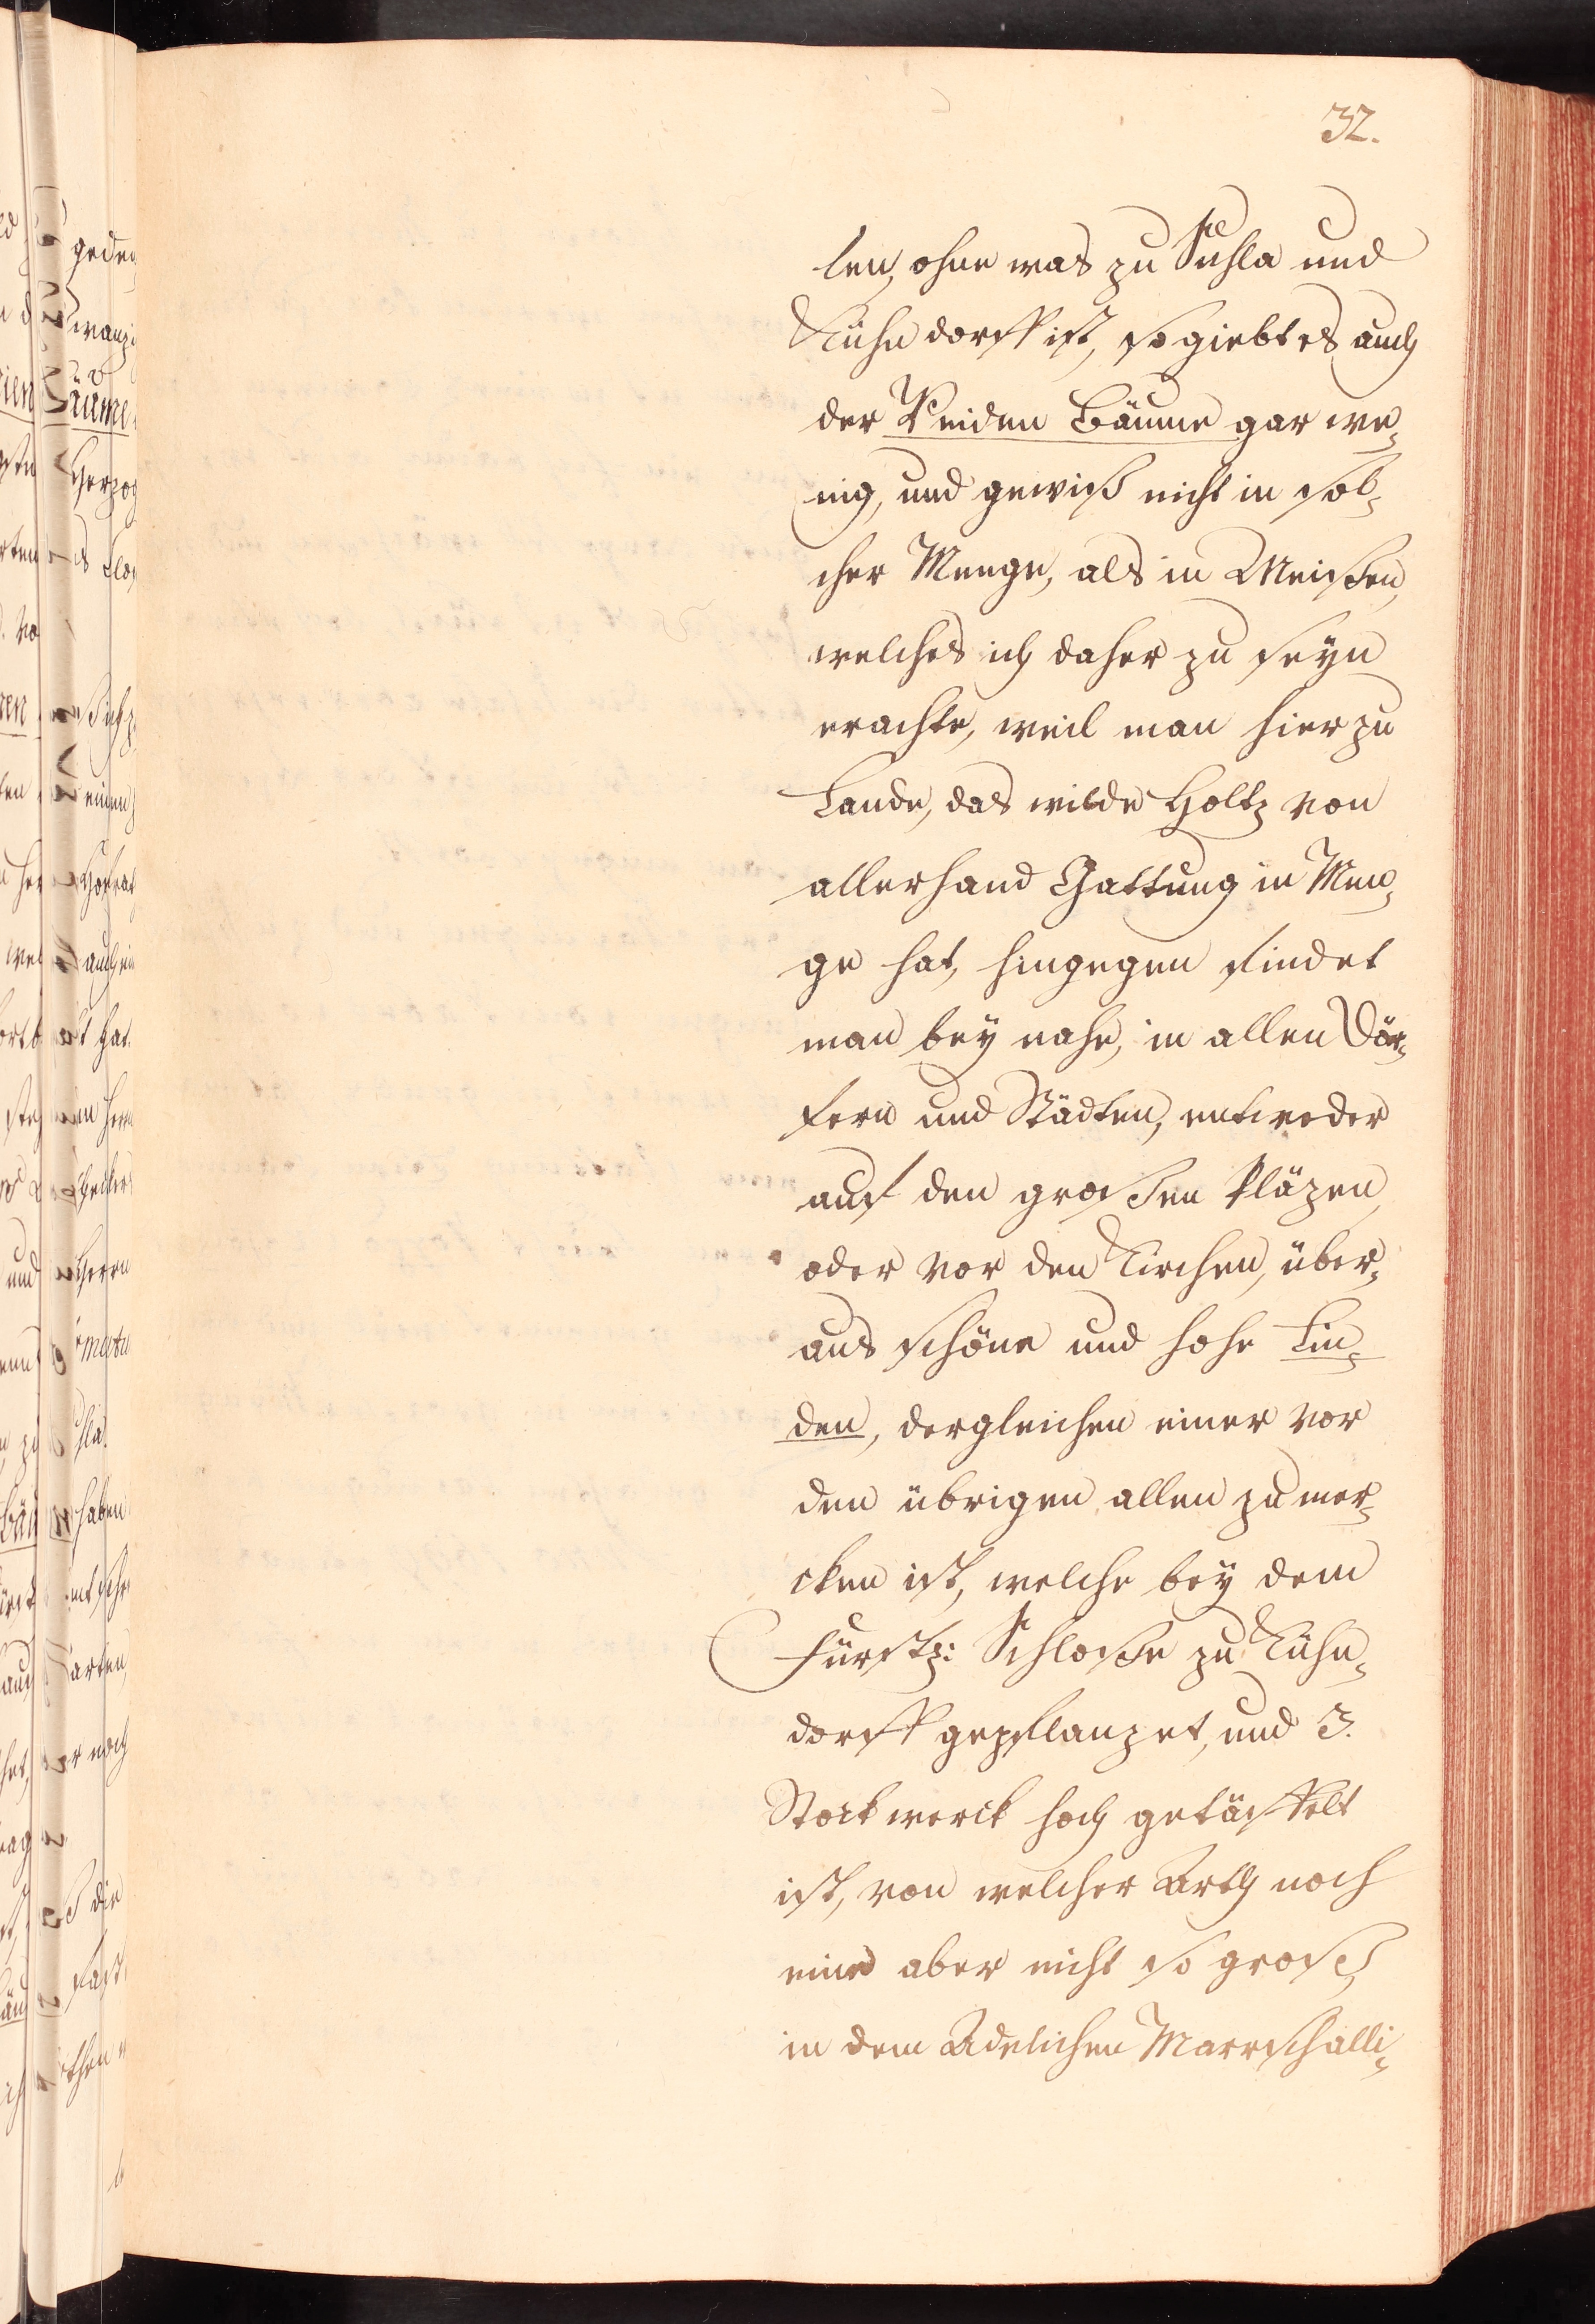 32.
len, ohne was zu Suhla und
Kühndorff ist, so giebt es auch
der Weiden Bäume gar we-
nig, und gewiß nicht in sol-
cher Menge, als in Meißen,
welches ich daher zu seyn
erachte, weil man hier zu
Lande, das wilde Holtz von
allerhand Gattung in Men-
ge hat, hingegen findet
man bey nahe, in allen Dör-
fern und Städten, entweder
auf den großen Pläzen,
oder vor den Kirchen, über-
aus schöne und hohe Lin-
den, dergleichen einer vor
den übrigen allen zu mer-
cken ist, welche bey dem
Fürstl: Schloße zu Kühn-
dorff gepflanzet, und 3.
Stockwerck hoch getäffelt
ist, von welcher Arth noch
eine aber nicht so groß,
in dem Adelichen Marschalli-